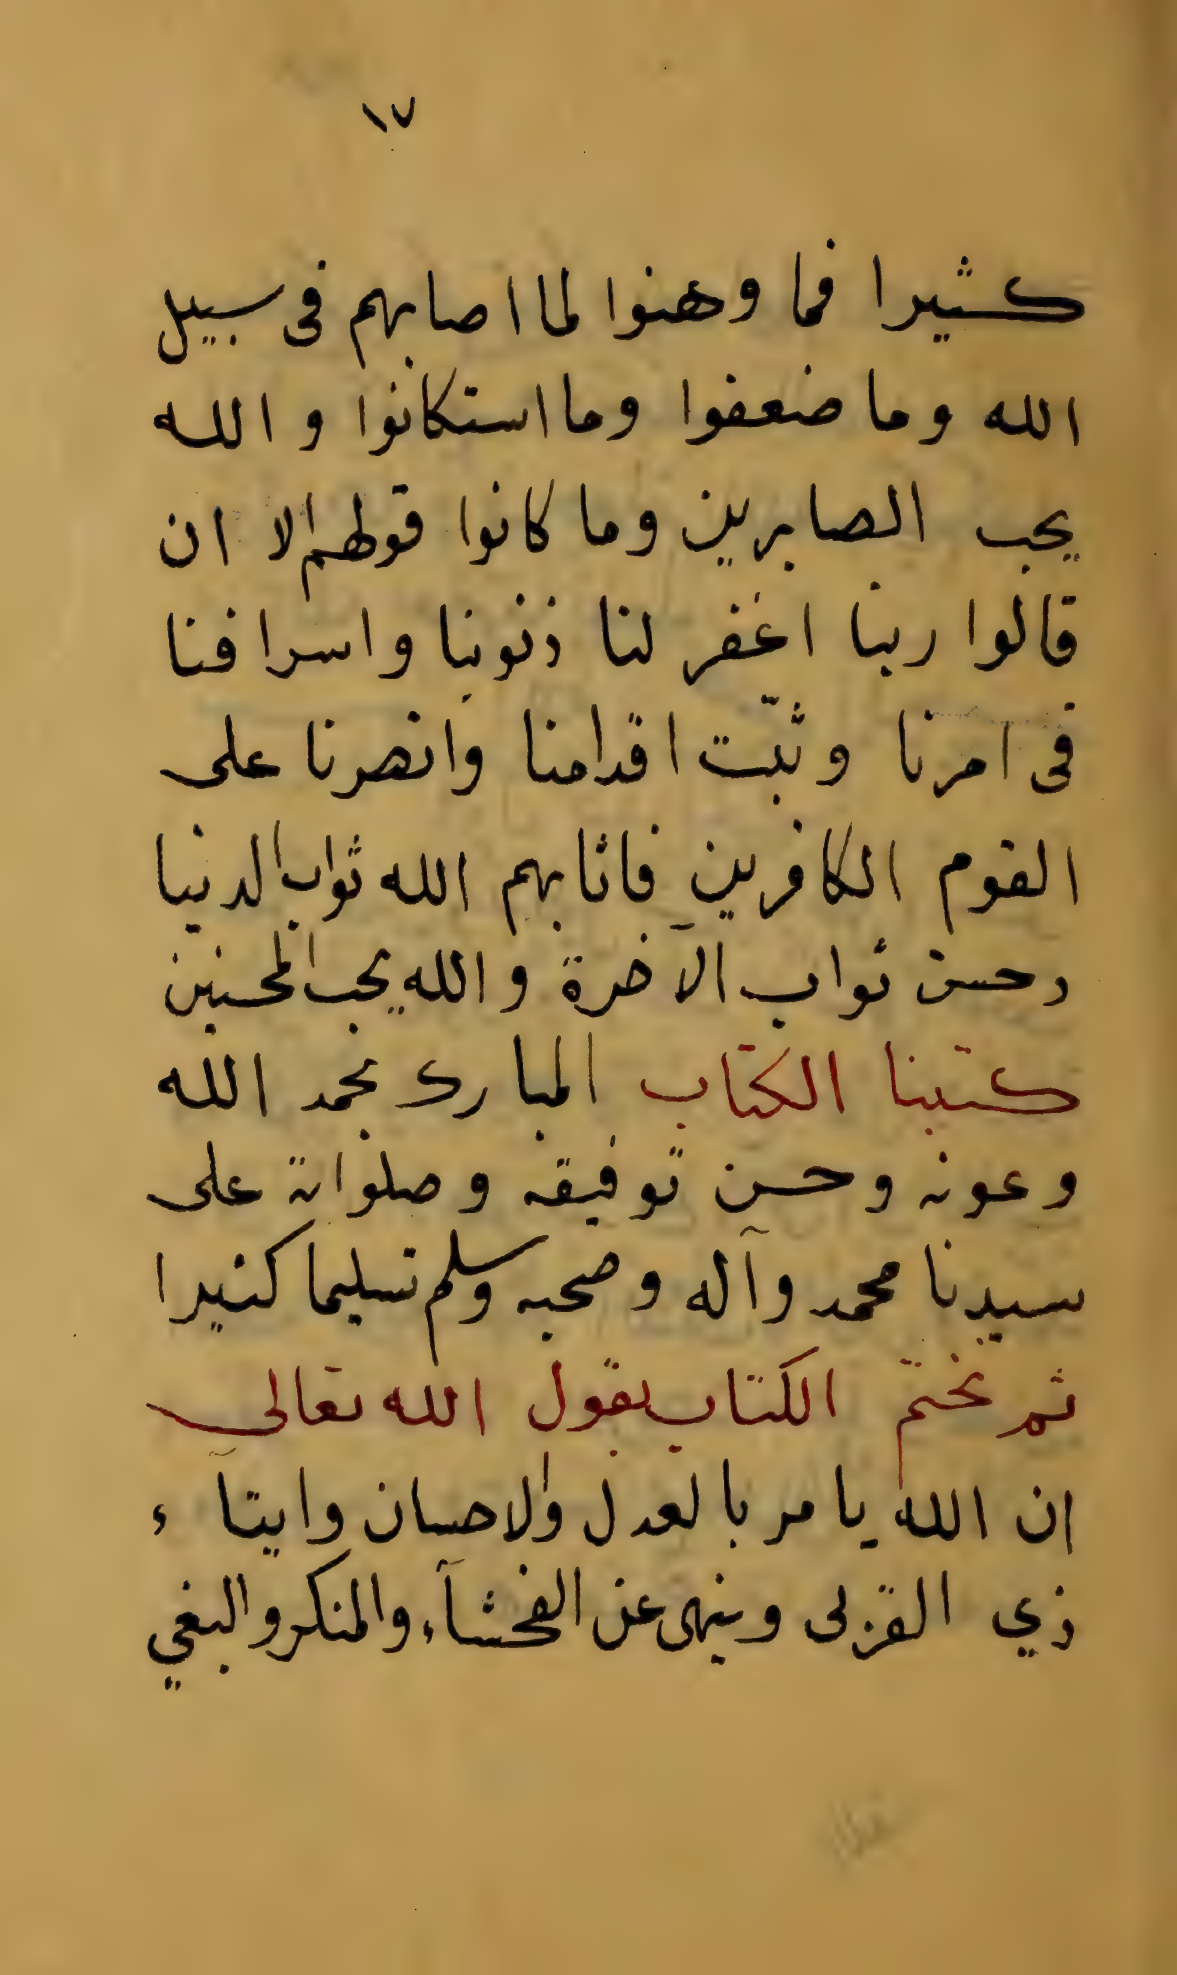 ١٧
كثيرا فما وهنوا لما اصابهم فى سبيل
الله وما ضعفوا وما استكانوا والله
يحب الصابرين وما كانوا قولهم الا ان
قالوا ربنا اغفر لنا ذنوبنا واسرافنا
فى امرنا وثبّت اقدامنا وانصرنا على
القوم الكافرين فاثابهم الله ثواب الدنيا
وحسن ثواب الآخرة والله يحب المحسنين
كتبنا الكتاب المبارك بحمد الله
وعونه وحسن توفيقه وصلواته على
سيدنا محمد وآله وصحبه وسلم تسليما كثيرا
ثم نختم الكتاب بقول الله تعالى
ان الله يامر بالعدل والاحسان وايتآء
ذي القربى وينهى عن الفحشآء والمنكر والبغي